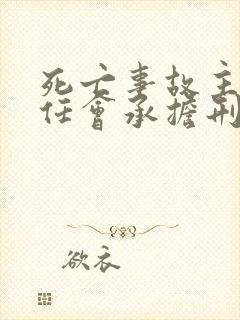 死亡事故主
任會承擔刑
欲衣